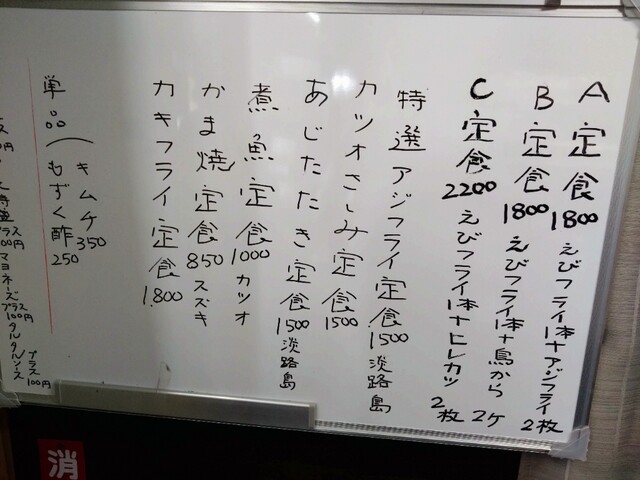 A定食1800 えびフライ1本+アジフライ2枚
B定食1800 えびフライ1本+鳥から2ケ
C定食2200 えびフライ1本+ヒレカツ2枚
特選アジフライ定食1500 淡路島
カツオさしみ定食1500
あじたたき定食1500 淡路島
煮魚定食1000 カツオ
かま焼定食850 スズキ
カキフライ定食1.800
単品(キムチ350
もずく酢250
プラス100円
マヨネーズプラス100円
タルタルソースプラス100円
消